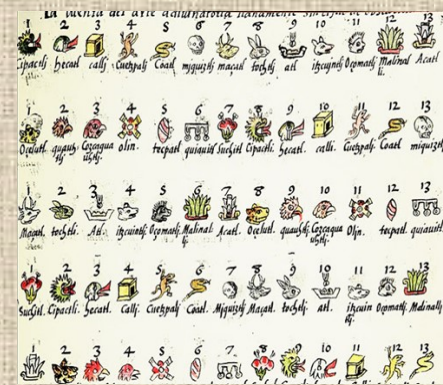 La cuenta del arte adiuinatoria
1 2 3 4 5 6 7 8 9 10 11 12 13
Cipactli hecatl calli Cuetzpalj Coatl miquiztlj maçatl tochtlj atl itzcuintlj Oçomatlj Malinal Acatl
li
1 2 3 4 5 6 7 8 9 10 11 12 13
Ocelutl. quauhtlj Cozcaqua olin. tecpatl quiauitl Suchitl Cipactli. hecatl. calli. Cuetzpalj Coatl miquizt
uhtlj
1 2 3 4 5 6 7 8 9 10 11 12 13
Maçatl. tochtlj. Atl. itzcuintlj Oçomatlj Malinal Acatl. Ocelutl. quauhtlj Cozcaqua Olin. tecpatl. quiauitl.
li uhtlj
1 2 3 4 5 6 7 8 9 10 11 12 13
Suchitl. Cipactli. hecatl. Calli. Cuetzpalj Coatl. Miquiztlj Maçatl. tochtlj. atl. itzcuin Oçomatlj. Malinalli
tlj.
1 2 3 4 5 6 7 8 9 10 11 12 13